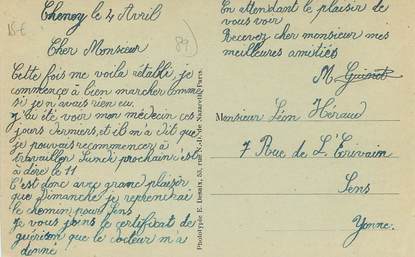 15 €
Chenoy le 4 Avril
89
Cher Monsieur
Cette fois me voila rétabli je
commence à bien marcher comme
si je n avais rien eu.
J'ai été voir mon médecin ces
jours derniers, et il m a dit que
je pouvais recommencer à
travailler Lundi prochain c'est
à dire le 11
C'est donc avec grand plaisir
que Dimanche je reprendrai
le chemin pour Sens
Je vous joins le certificat de
guérison que le docteur m a
donné
En attendant le plaisir de
vous voir
Recevez cher monsieur mes
meilleures amitiés
M
Monsieur Léon Héraud
7 Rue de L'Ecrivain
Sens
Yonne.
Phototypie E. Desaix, 53, rue N.-D. de Nazareth, Paris.